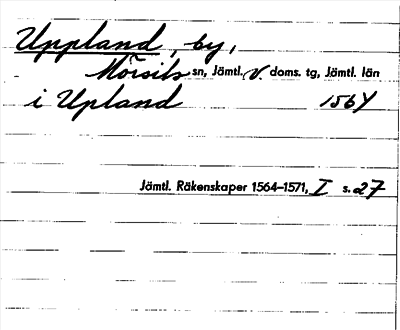 Uppland, by,
Mörsils sn, Jämtl. V. doms. tg, Jämtl. län
i Upland 1564
Jämtl. Räkenskaper 1564–1571, I s. 27